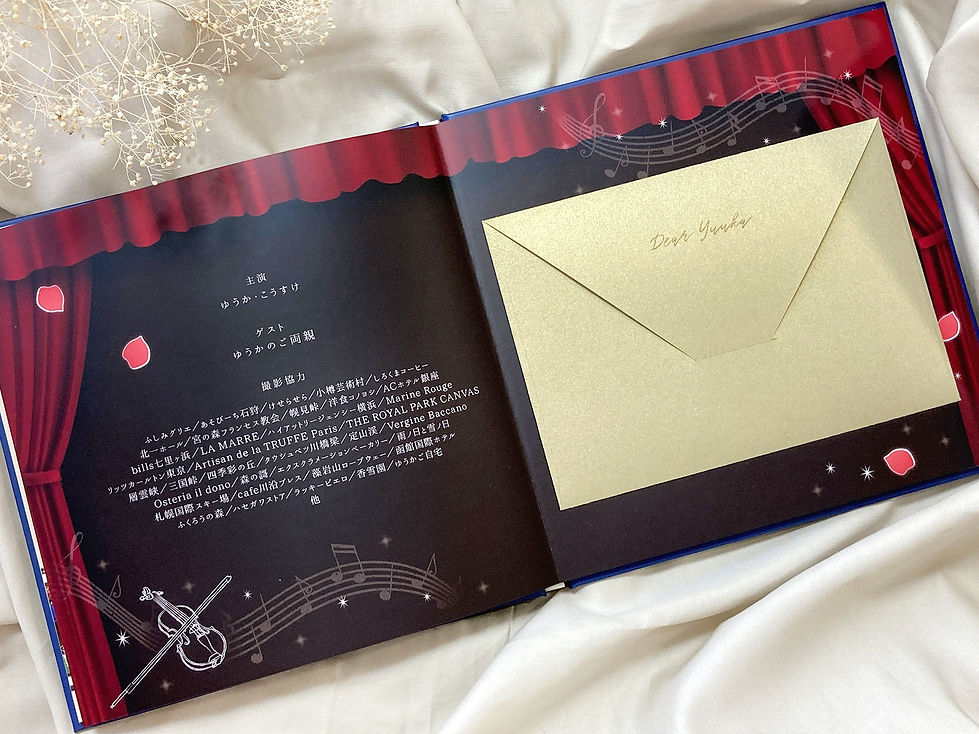 主演
ゆうか・こうすけ
ゲスト
ゆうかのご両親
撮影協力
ふしみグリエ／あそびーち石狩／けせらせら／小樽芸術村／しろくまコーヒー
北一ホール／宮の森フランセス教会／幌見峠／洋食コノヨシ／ACホテル銀座
bills七里ヶ浜／LA MARRE／ハイアットリージェンシー横浜／Marine Rouge
リッツカールトン東京／Artisan de la TRUFFE Paris／THE ROYAL PARK CANVAS
層雲峡／三国峠／四季彩の丘／タウシュベツ川橋梁／定山渓／Vergine Baccano
Osteria il dono／森の謌／エクスクラメーションベーカリー／雨ノ日と雪ノ日
札幌国際スキー場／cafe川沿ブレス／藻岩山ロープウェー／函館国際ホテル
ふくろうの森／ハセガワストア／ラッキーピエロ／香雪園／ゆうかご自宅
他
Dear Yuuka